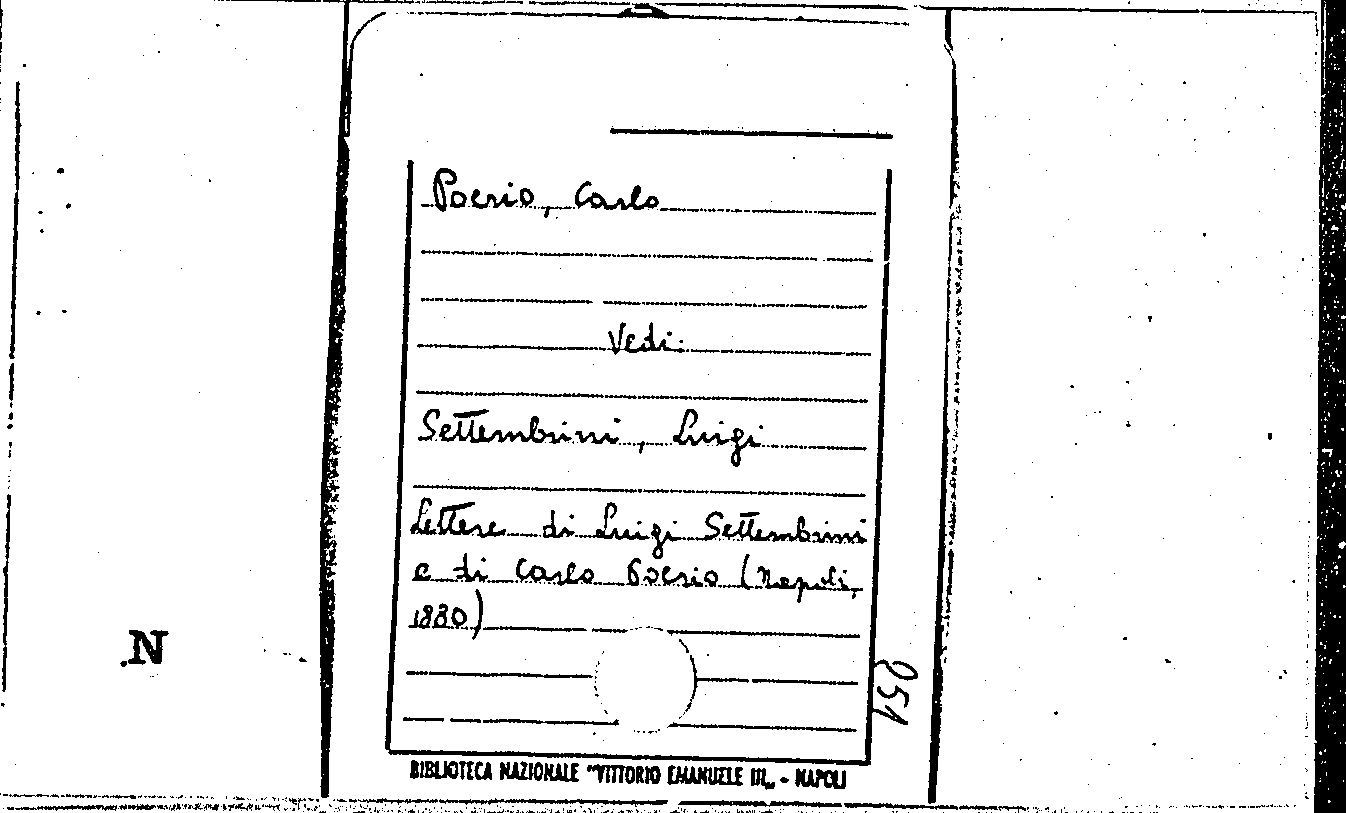 Poerio, Carlo
Vedi:
Settembrini, Luigi
Lettere di Luigi Settembrini
e di Carlo Poerio (Napoli,
1880)
N
851
BIBLIOTECA NAZIONALE "VITTORIO EMANUELE III„ - NAPOLI